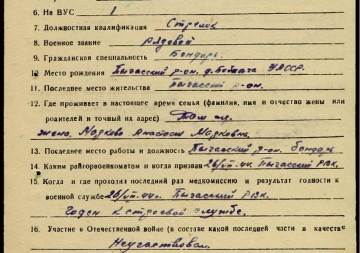 6. На ВУС 1
7. Должностная квалификация Стрелок
8. Военное звание Рядовой
9. Гражданская специальность Бондарь
10. Место рождения Пычасский р-он. д. УАССР.
11. Последнее место жительства Пычасский р-он.
12. Где проживает в настоящее время семья (фамилия, имя и отчество жены или
родителей и точный их адрес) Там же.
жена,
13. Последнее место работы и должность Пычасский р-он. Бондарь
14. Каким райгорвоенкоматом и когда призван 26/VII-44г. Пычасский РВК.
15. Когда и где проходил последний раз медкомиссию и результат годности к
военной службе 26/VII-44г. Пычасский РВК.
Годен к строевой службе.
16. Участие в Отечественной войне (в составе какой последней части в качестве
Неучаствовал.